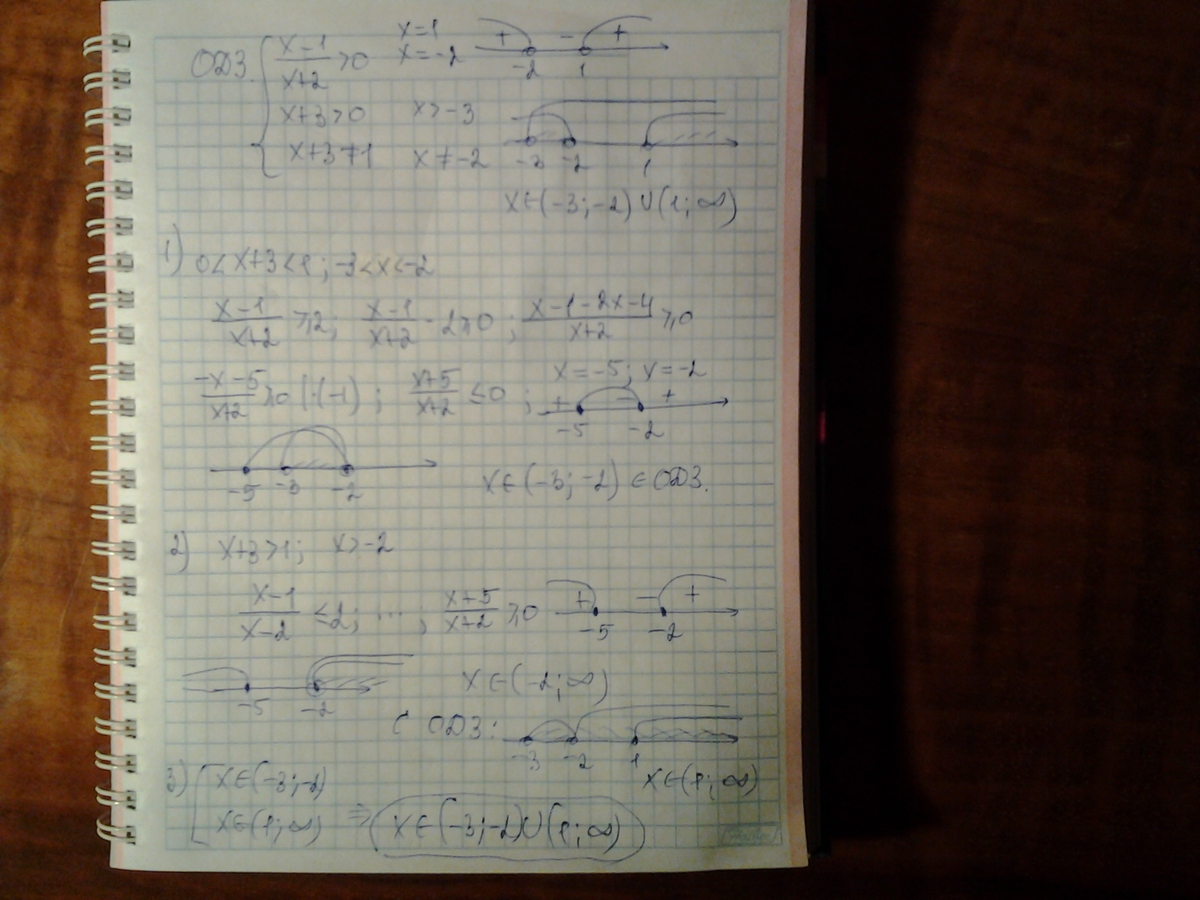 ОДЗ. { (x-1)/(x+2) > 0 x=1 x=-2 + - + -2 1
x+3>0 x>-3
x+3≠1 x≠-2 -3 -2 1
x∈(-3;-2)∪(1;∞)
1) 0<x+3<1; -3<x<-2
(x-1)/(x+2) ≥ 2; (x-1)/(x+2) - 2 ≥ 0; (x-1-2x-4)/(x+2) ≥ 0
(-x-5)/(x+2) ≥ 0 |·(-1); (x+5)/(x+2) ≤ 0; x=-5; x=-2 + - + -5 -2
-5 -3 -2 x∈(-3;-2) ∈ ОДЗ.
2) x+3>1; x>-2
(x-1)/(x-2) ≤ 2; ...; (x+5)/(x+2) ≥ 0 + - + -5 -2
-5 -2 x∈(-2;∞)
С ОДЗ: -3 -2 1
x∈(1;∞)
3) [ x∈(-3;-2)
x∈(1;∞) ⇒ x∈(-3;-2)∪(1;∞)